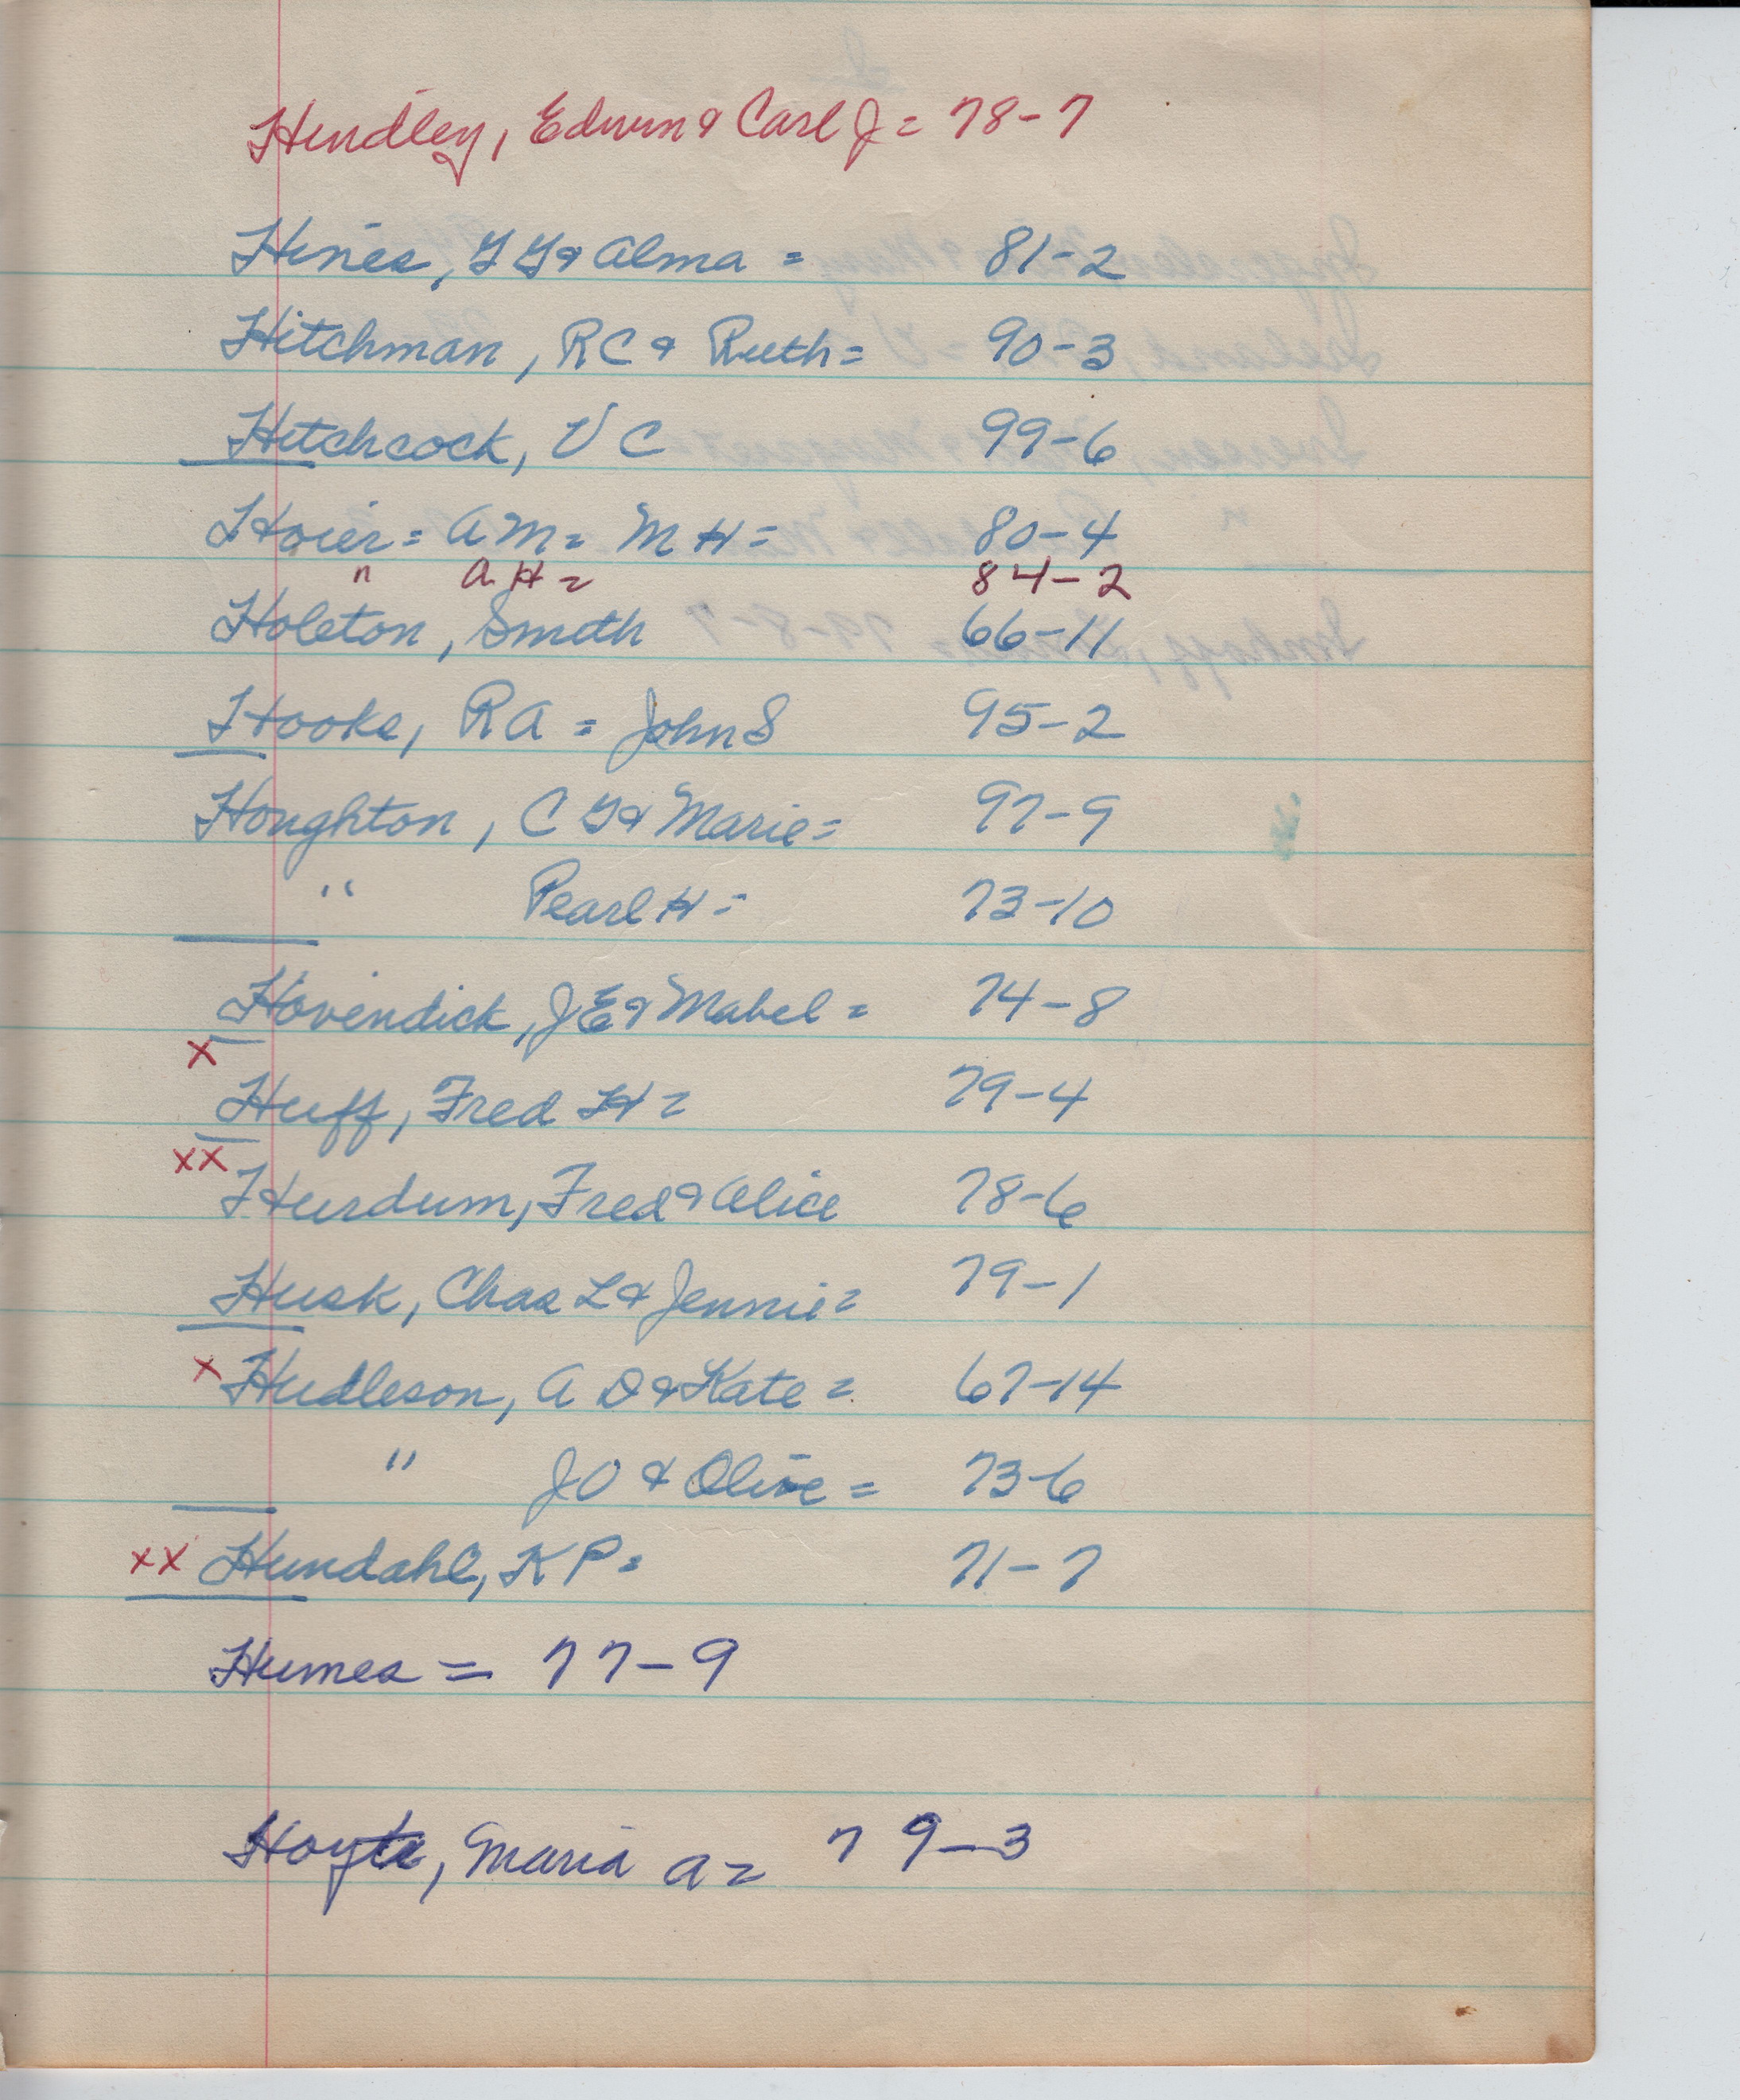 Hindley, Edwin & Carl J = 78-7
Hines, G G & Alma = 81-2
Hitchman, RC & Ruth = 90-3
Hitchcock, V C 99-6
Hoier = A M = M H = 80-4
" A H = 84-2
Holeton, Smith 66-11
Hooke, R A = John S 95-2
Houghton, C G & Marie = 97-9
" Pearl H = 73-10
Hovendick, J E & Mabel = 74-8
x
Huff, Fred H = 79-4
xx
Hurdum, Fred & Alice 78-6
Husk, Chas L & Jennie = 79-1
x Hudleson, A D & Kate = 67-14
" J O & Olive = 73-6
xx Hundahl, K P = 71-7
Humes = 77-9
Hoyt, Maria A = 79-3